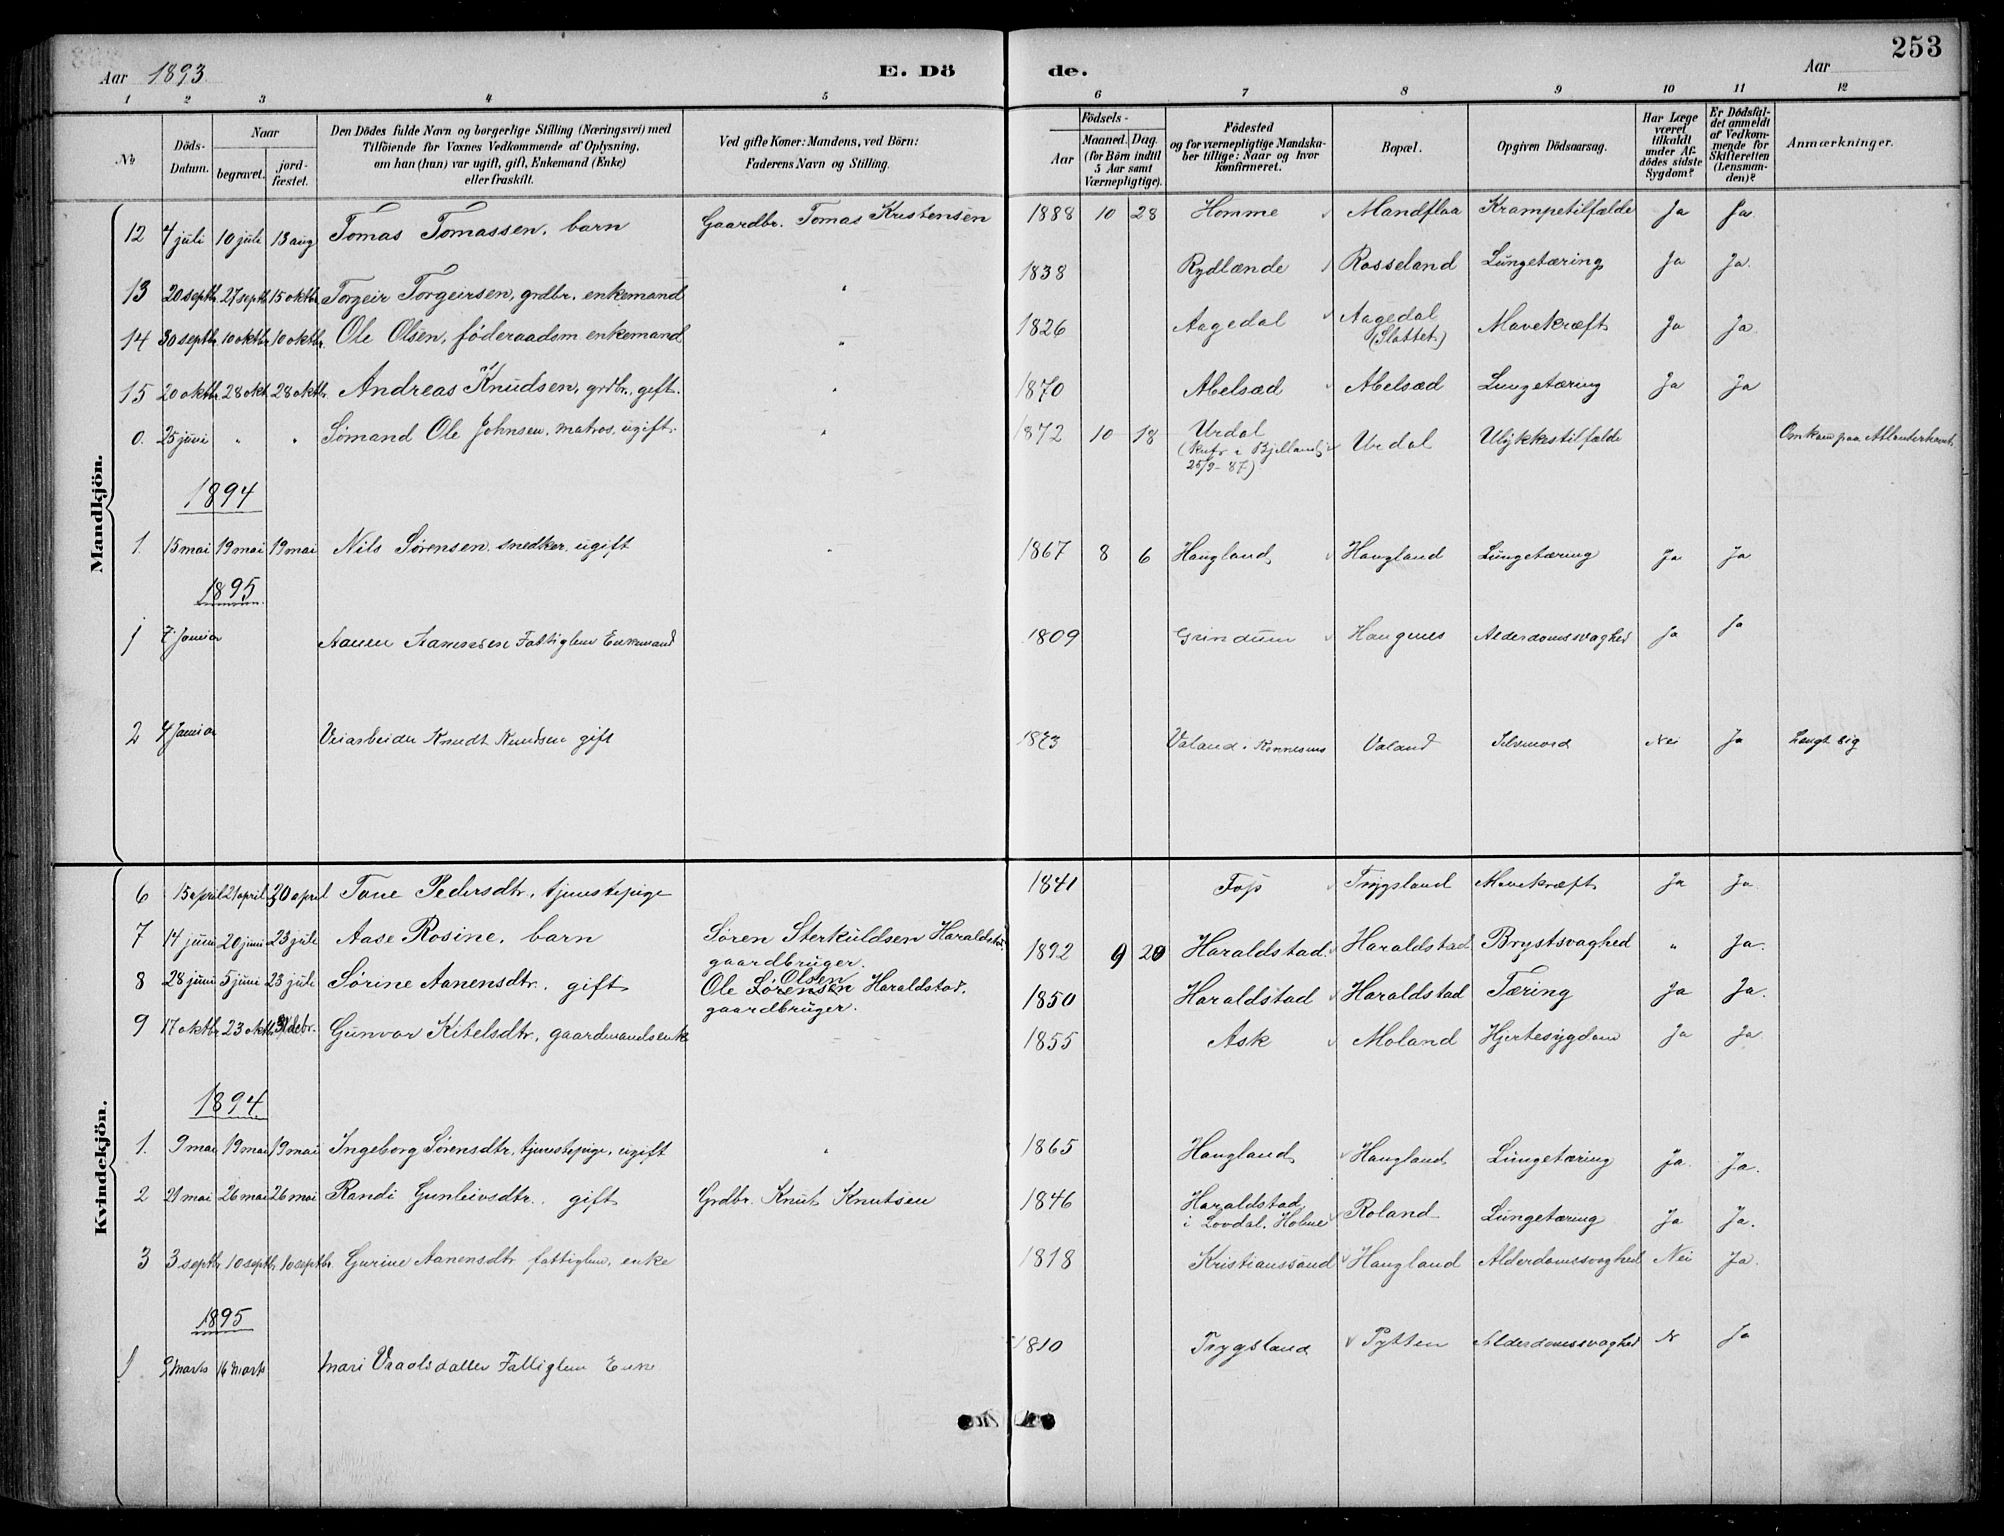 Aar 1893. E. Dö de. Aar 253
1 2 3 4 5 6 7 8 9 10 11 12
No Döds-Datum. Naar begravet. jordfæstet. Den Dödes fulde Navn og borgerlige Stilling (Næringsvei) med Tilföiende for Voxnes Vedkommende af Oplysning, om han (hun) var ugift, gift, Enkemand (Enke) eller fraskilt. Ved gifte Koner: Mandens, ved Börn: Faderens Navn og Stilling. Födsels- Aar Maaned. Dag. (for Börn indtil 5 Aar samt Værnepligtige). Födested og for værnepligtige Mandskaber tillige: Naar og hvor konfirmeret. Bopæl. Opgiven Dödsaarsag. Har Læge været tilkaldt under Afdödes sidste Sygdom? Er Dödsfaldet anmeldt af Vedkommende for Skifteretten (Lensmanden)? Anmærkninger.
Mandkjön.
12 4 juli 10 juli 13 aug Tomas Tomassen, barn Gaardbr. Tomas Kristensen 1888 10 28 Homme Mandflaa Krampetilfælde Ja Ja
13 20 septbr 27 septb 15 oktbr Torgeir Torgeirsen, grdbr. enkemand " 1838 Rydlænde Rosseland Lungetæring Ja Ja
14 30 septbr 10 oktbr 10 oktbr. Ole Olsen, føderaadsm enkemand " 1826 Aagedal Aagedal (Slottet) Mavekræft Ja Ja
15 20 oktbr 28 okt. 28 oktbr Andreas Knudsen, grdbr. gift. " 1870 Abelsæd Abelsæd Lungetæring Ja Ja
0. 25 juni " " Sømand Ole Johnsen, matros, ugift. " 1872 10 18 Urdal (Knfr i Bjelland 25/9-87) Urdal Ulykkestilfælde Omkom paa Atlanterhavet
1894
1. 15 mai 19 mai 19 mai Nils Sørensen, snedker, ugift " 1867 8 6 Haugland Haugland Lungetæring Ja Ja
1895
1 7 Januar Aanen Aanensen Fattiglem Enkemand 1809 Grundum Haugenes Alderdomssvaghed Ja Ja
2 4 Januar Veiarbeider Knudt Knudsen gift 1873 Valand i Konnesms Valand Selvmord Nei Ja Hengt sig
Kvindekjön.
6 15 april 21 april 30 april Tone Pedersdtr, tjenstepige 1841 Foss Trygsland Mavekræft Ja Ja
7 14 juni 20 juni 23 juli Aase Rosine, barn Søren Sterkuldsen Haraldstad. gaardbruger. 1892 9 20 Haraldstad. Haraldstad Brystsvaghed " Ja.
8 28 juni 5 juni 23 juli Sørine Aanensdtr. gift Ole Sørensen Olsen Haraldstad. gaardbruger. 1850 Haraldstad Haraldstad Tæring Ja Ja.
9 17 oktbr 23 oktb debr. Gunvor Kitelsdtr, gaardmandsenk 1855 Ask Moland Hjertesygdom Ja Ja
1894
1. 9 mai 19 mai 19 mai Ingeborg Sørensdtr, tjenstepige, ugift " 1865 Haugland Haugland Lungetæring Ja. Ja.
2 21 mai 26 mai 26 mai Randi Gunleivsdtr. gift Grdbr. Knut Knutsen 1846 Haraldstad i Lovdal. Holme Roland Lungetæring Ja Ja.
3 3 septbr 10 septb 10 septbr. Gurine Aanensdtr fattiglem, enke 1818 Kristianssand Haugland Alderdomssvaghed Nei Ja.
1895
1 9 Marts 16 Marts Mari Vraalsdatter Fattiglem Enke 1810 Trygsland Pytten Alderdomssvaghed N Ja